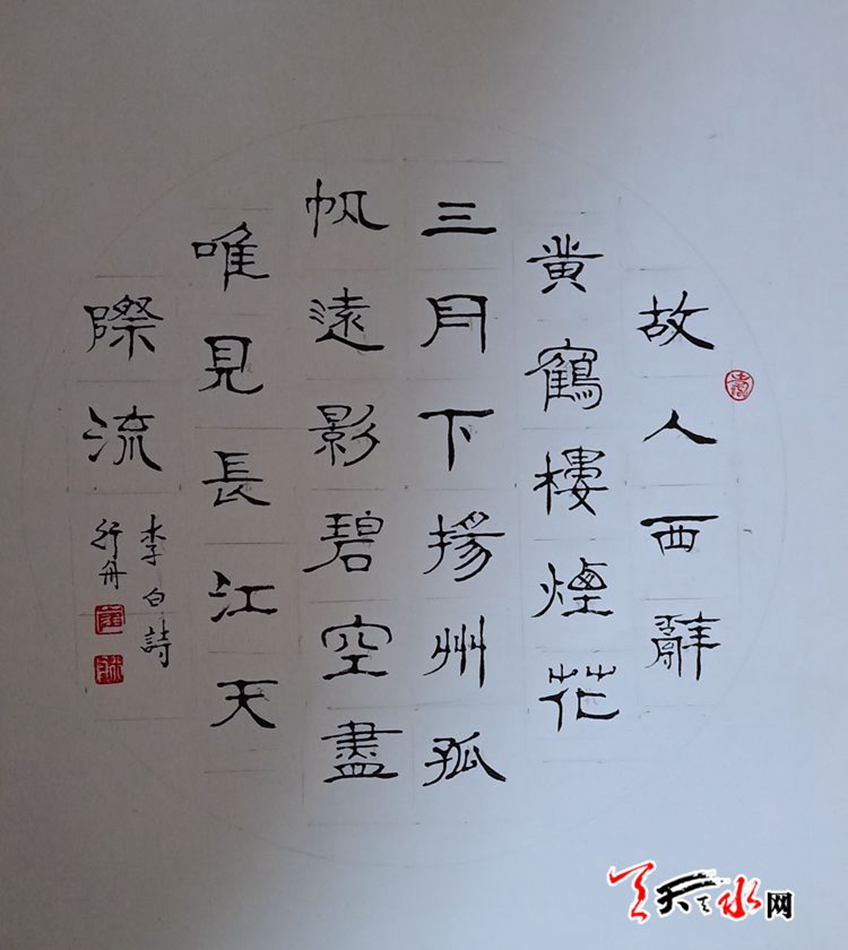 故人西辭
黄鶴樓煙花
三月下揚州孤
帆遠影碧空盡
唯見長江天
際流
李白詩
行舟
天天水网